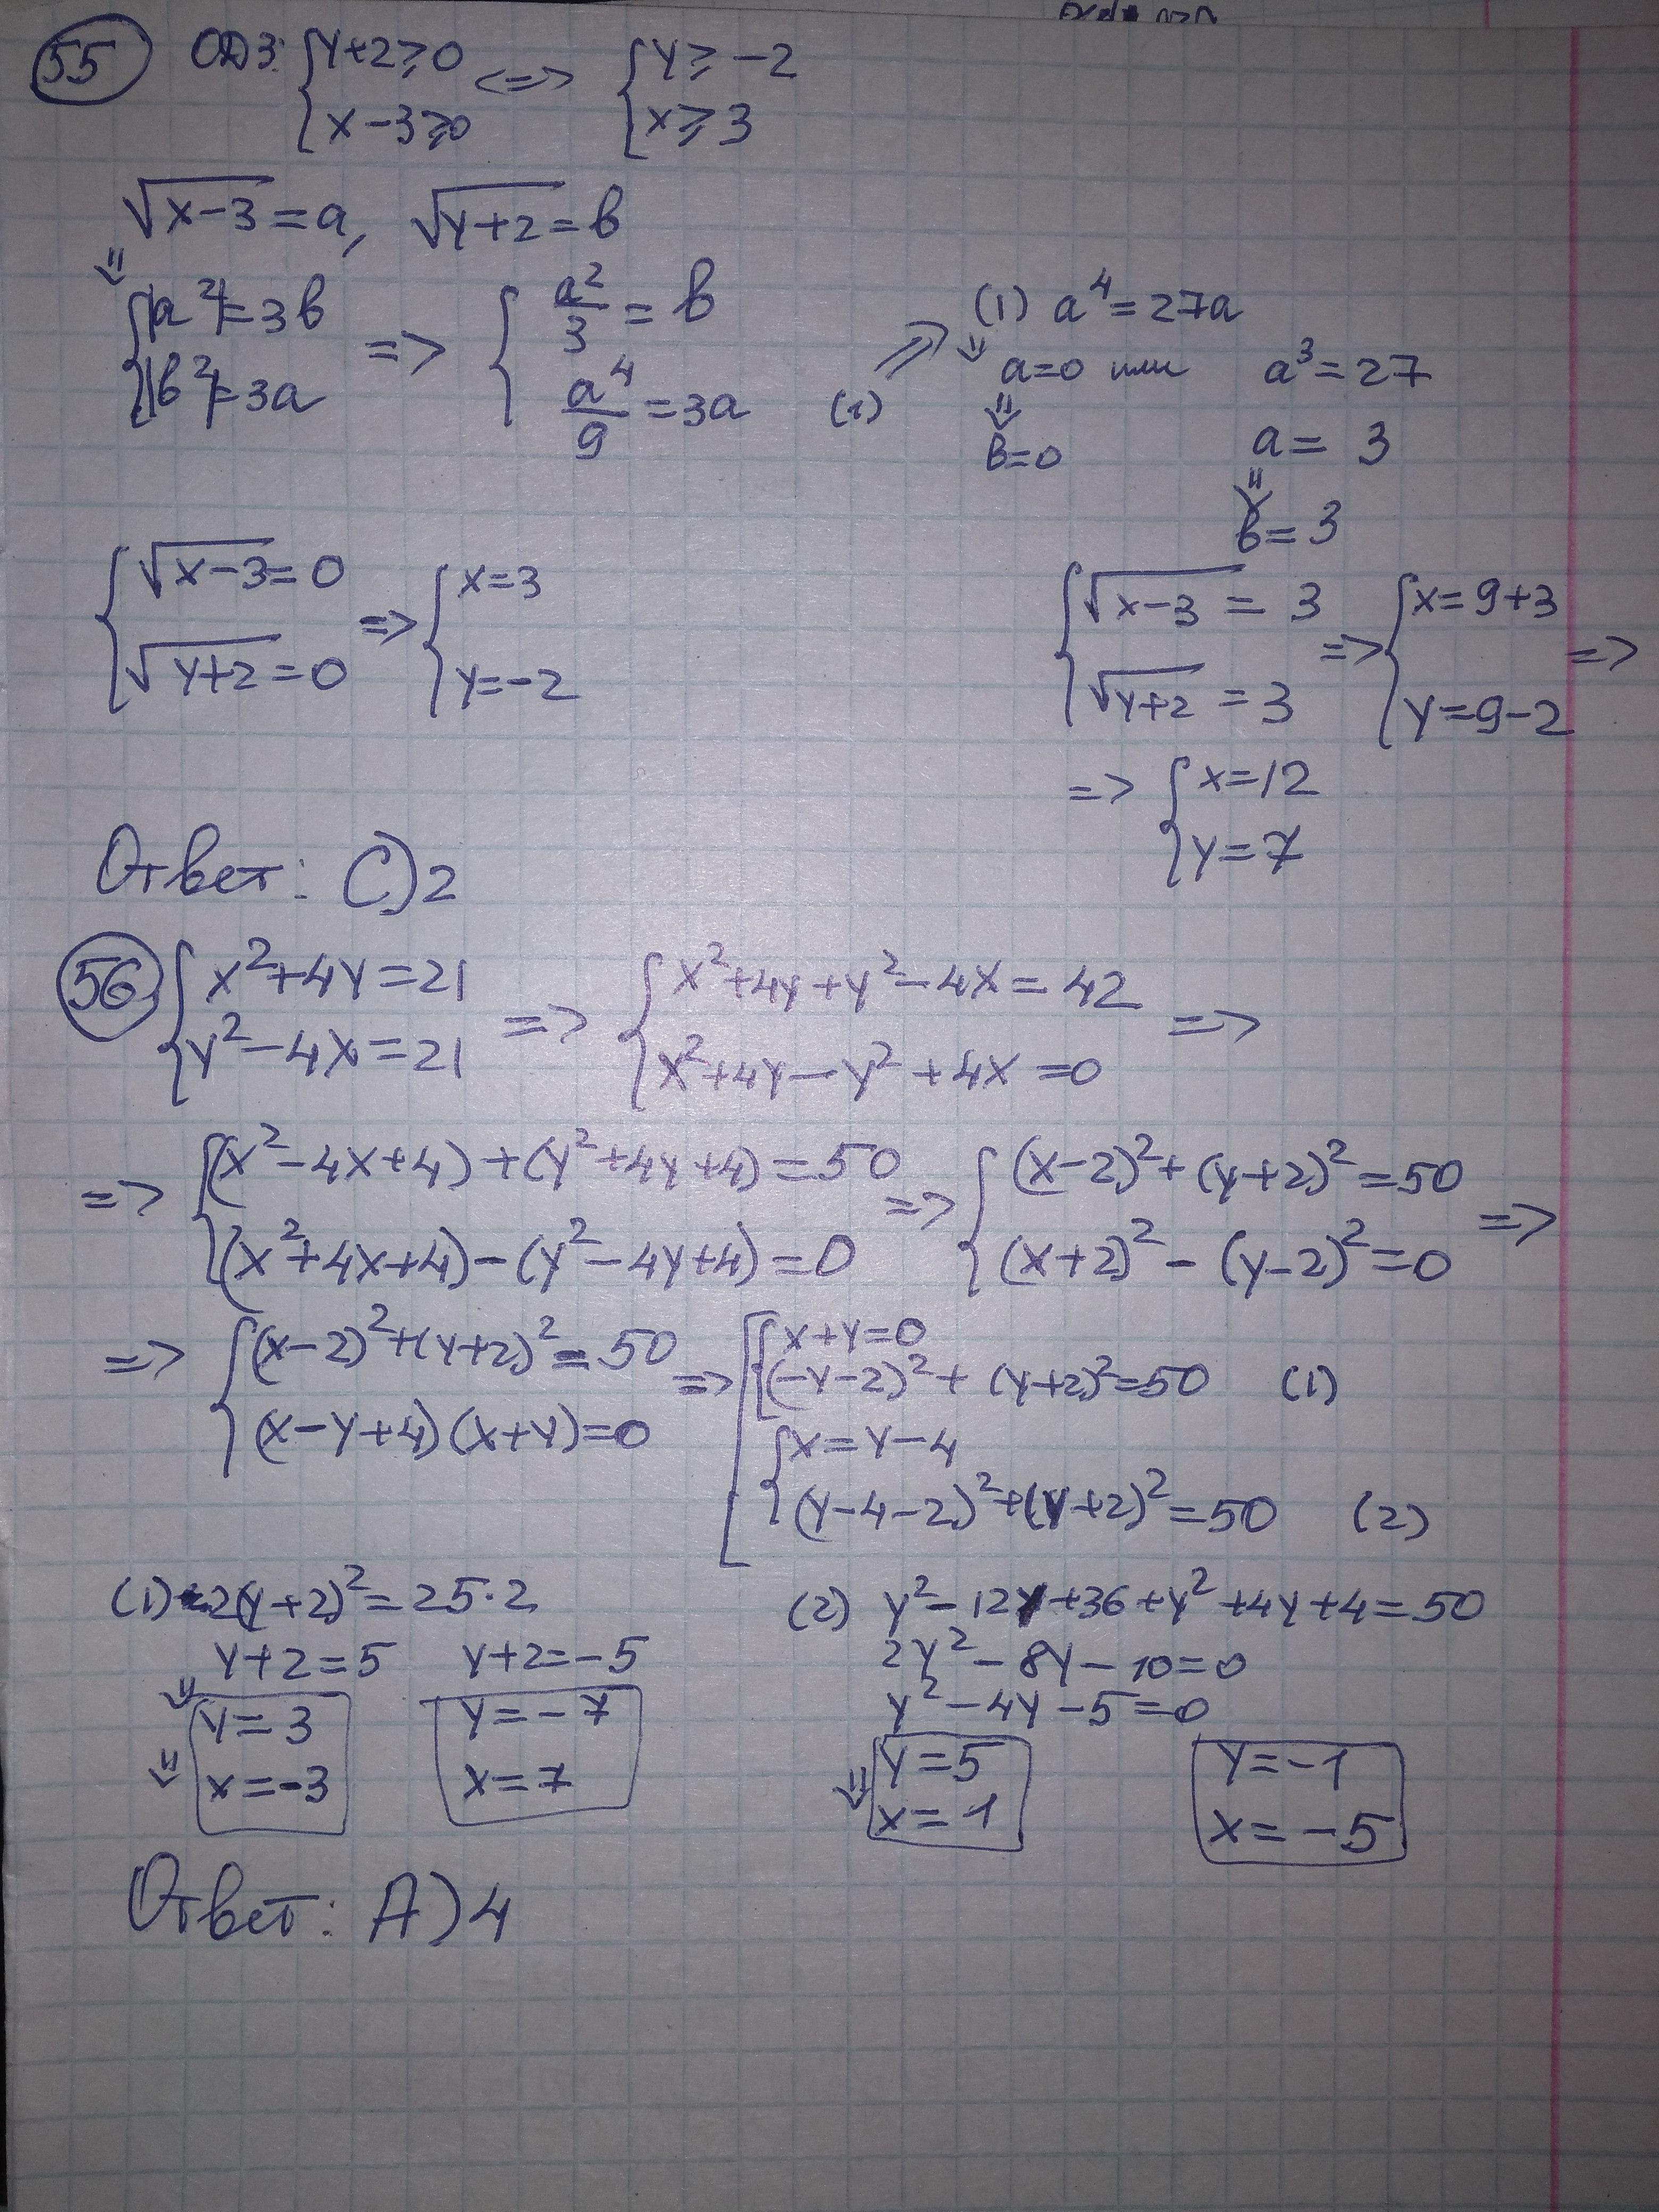 55 ОДЗ: { y+2≥0 <=> { y≥-2
x-3≥0 x≥3
√(x-3)=a, √(y+2)=b
⇓
{ |a²|=3b => { a²/3=b
|b²|=3a a⁴/9=3a (1)
=> (1) a⁴=27a
⇓ a=0 или a³=27
⇓ a=3
b=0 ⇓
b=3
{ √(x-3)=0 => { x=3
√(y+2)=0 y=-2
{ √(x-3)=3 => { x=9+3 =>
√(y+2)=3 y=9-2
=> { x=12
y=7
Ответ: C)2
56 { x²+4y=21 => { x²+4y+y²-4x=42 =>
y²-4x=21 x²+4y-y²+4x=0
=> { (x²-4x+4)+(y²+4y+4)=50 => { (x-2)²+(y+2)²=50 =>
(x²+4x+4)-(y²-4y+4)=0 (x+2)²-(y-2)²=0
=> { (x-2)²+(y+2)²=50 => [ { x+y=0
(x-y+4)(x+y)=0 (-y-2)²+(y+2)²=50 (1)
{ x=y-4
(y-4-2)²+(y+2)²=50 (2)
(1) 2(y+2)²=25·2
y+2=5 y+2=-5
⇓ y=3 y=-7
⇓ x=-3 x=7
(2) y²-12y+36+y²+4y+4=50
2y²-8y-10=0
y²-4y-5=0
y=5 y=-1
⇓ x=1 x=-5
Ответ: A)4